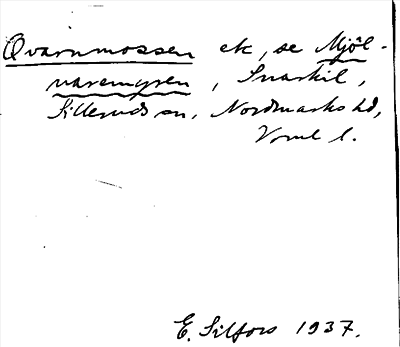 Qvarnmossen etc, se Mjöl-
varemyren, Snarkil,
Silleruds sn, Nordmarks hd,
Vrml l.
E. Silfors 1937.